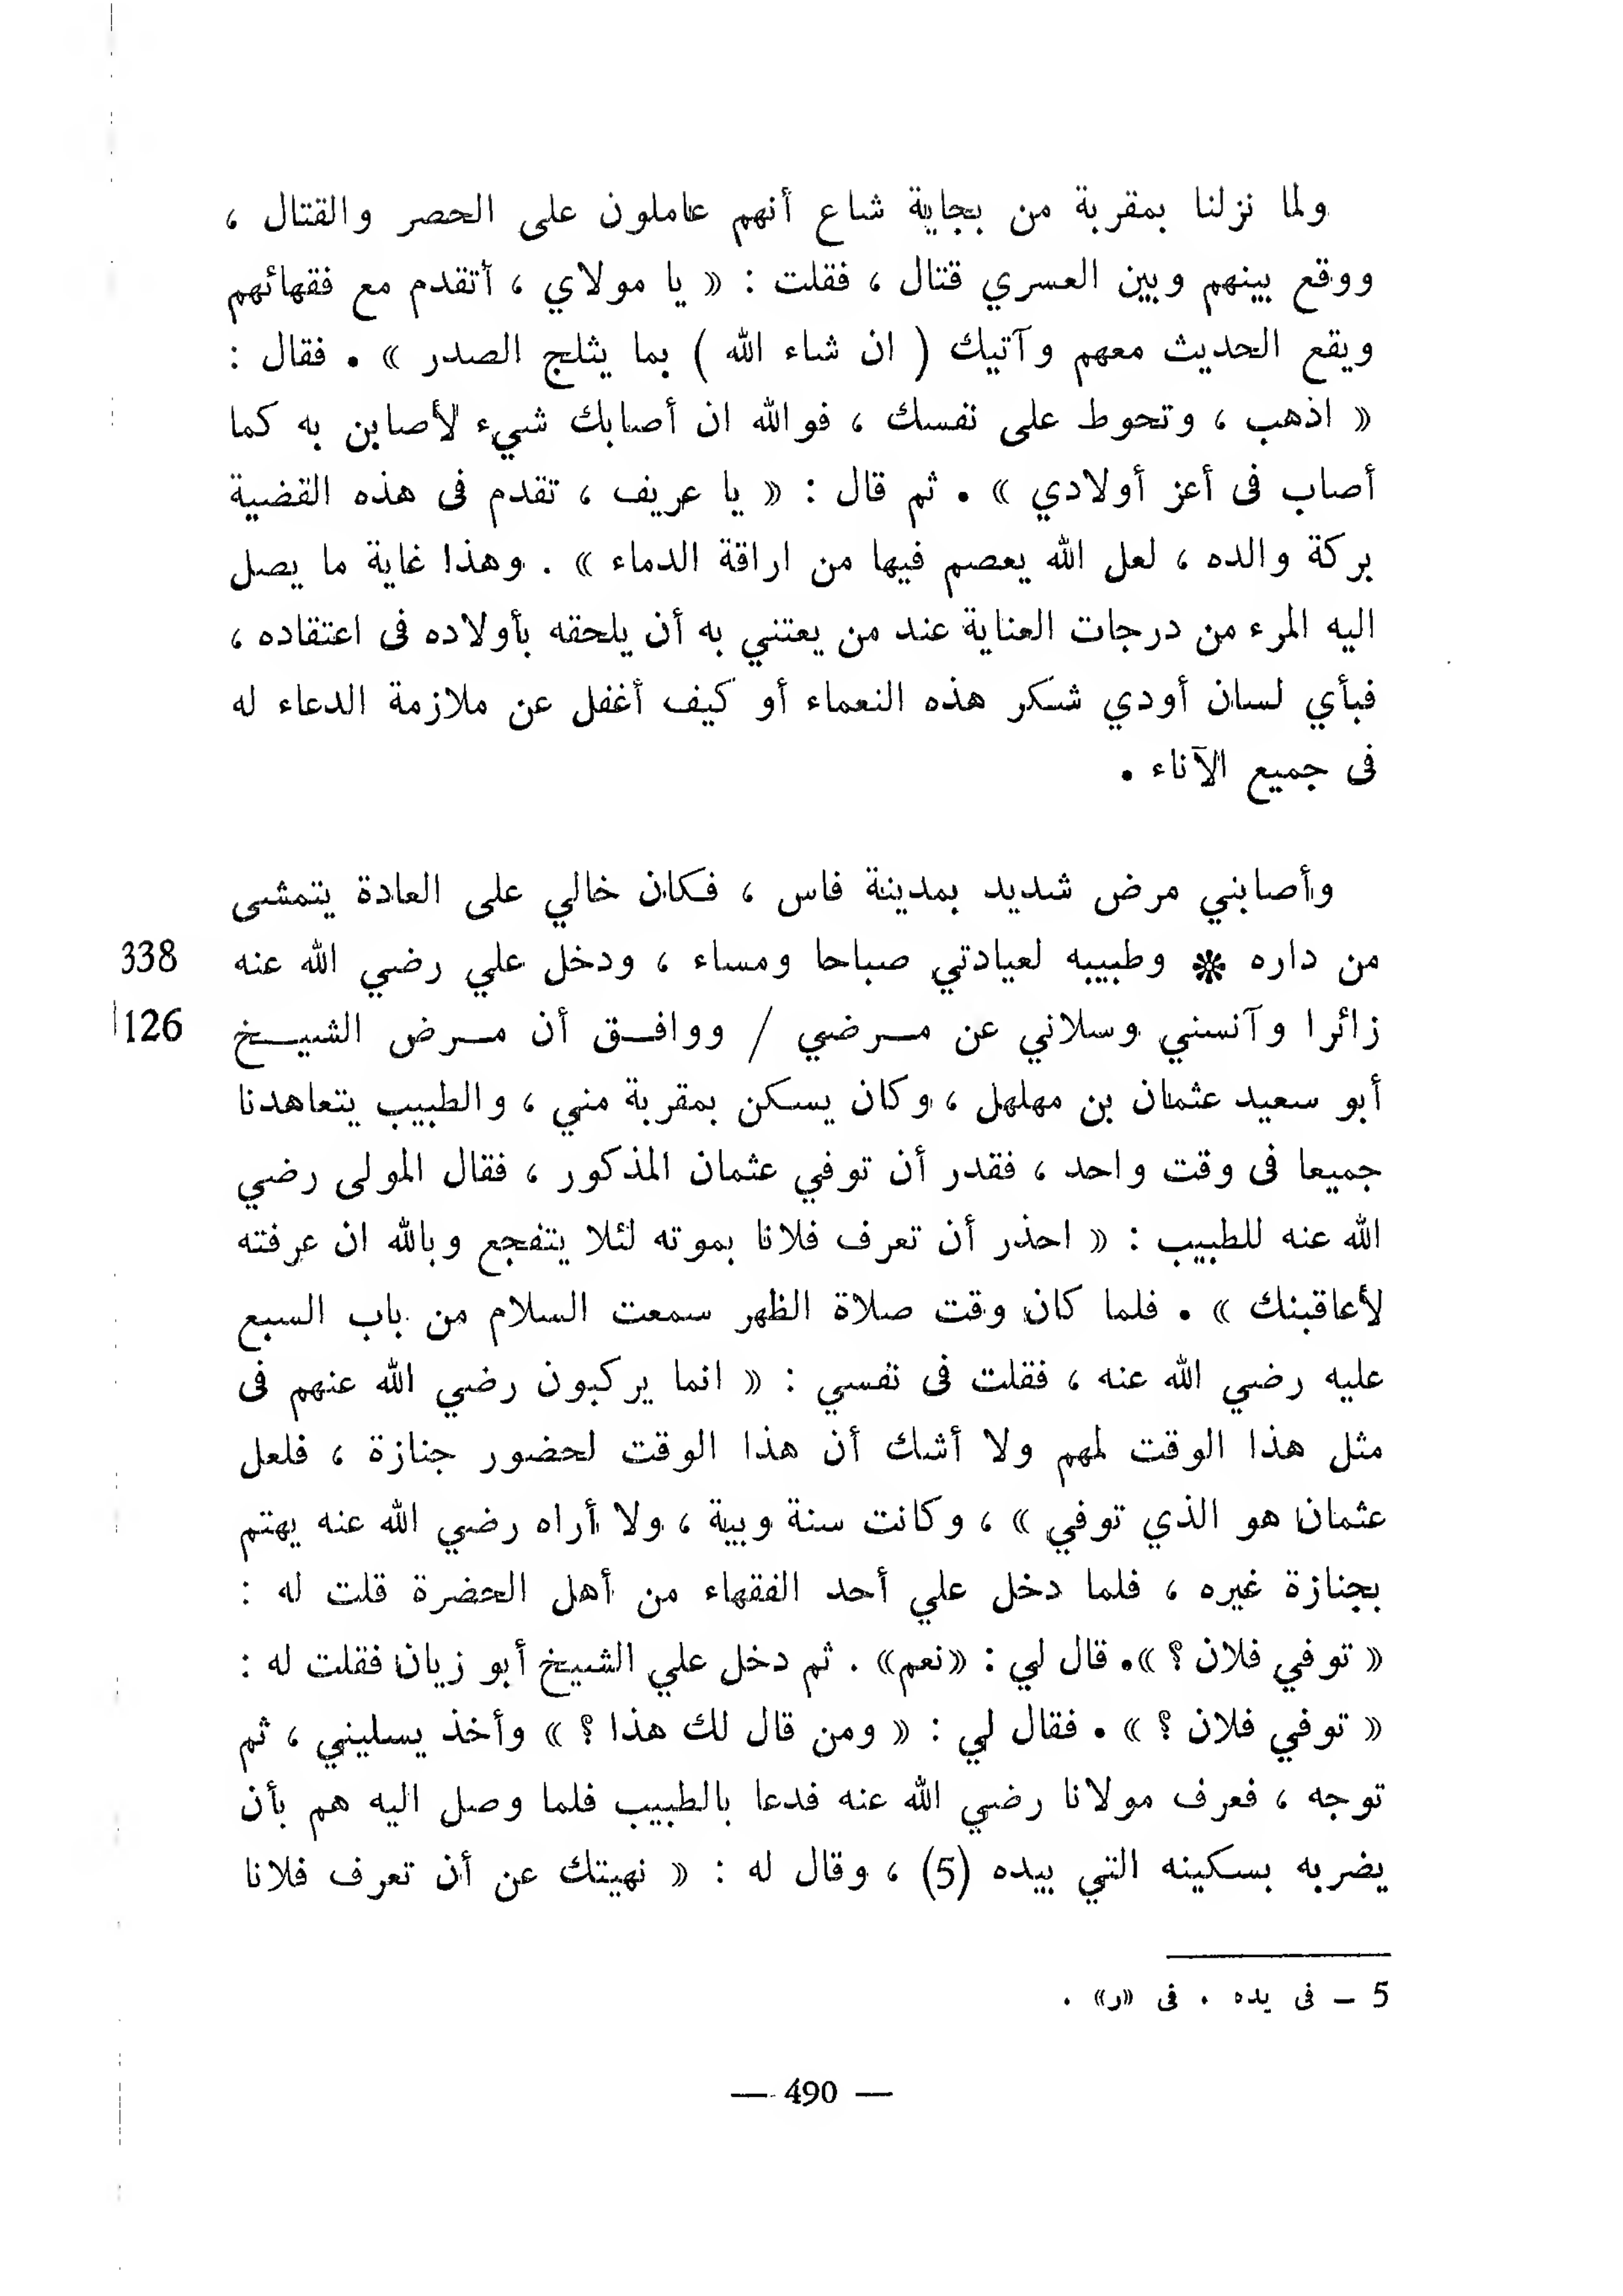 ولما نزلنا بمقربة من بجاية شاع أنهم عاملون على الحصر والقتال ،
ووقع بينهم وبين العسري قتال ، فقلت : « يا مولاي ، أتقدم مع فقهائهم
ويقع الحديث معهم وآتيك ( ان شاء الله ) بما يثلج الصدر » . فقال :
« اذهب ، وتحوط على نفسك ، فوالله ان أصابك شيء لأصابن به كما
أصاب فى أعز أولادي » . ثم قال : « يا عريف ، تقدم فى هذه القضية
بركة والده ، لعل الله يعصم فيها من اراقة الدماء » . وهذا غاية ما يصل
اليه المرء من درجات العناية عند من يعتني به أن يلحقه بأولاده فى اعتقاده ،
فبأي لسان أودي شكر هذه النعماء أو كيف أغفل عن ملازمة الدعاء له
فى جميع الآناء .
وأصابني مرض شديد بمدينة فاس ، فكان خالي على العادة يتمشى
من داره * وطبيبه لعيادتي صباحا ومساء ، ودخل علي رضي الله عنه 338
زائرا وآنسني وسلاني عن مرضي / ووافق أن مرض الشيخ 126
أبو سعيد عثمان بن مهلهل ، وكان يسكن بمقربة مني ، والطبيب يتعاهدنا
جميعا فى وقت واحد ، فقدر أن توفي عثمان المذكور ، فقال المولى رضي
الله عنه للطبيب : « احذر أن تعرف فلانا بموته لئلا يتفجع وبالله ان عرفته
لأعاقبنك » . فلما كان وقت صلاة الظهر سمعت السلام من باب السبع
عليه رضي الله عنه ، فقلت فى نفسي : « انما يركبون رضي الله عنهم فى
مثل هذا الوقت لمهم ولا أشك أن هذا الوقت لحضور جنازة ، فلعل
عثمان هو الذي توفي » ، وكانت سنة وبية ، ولا أراه رضي الله عنه يهتم
بجنازة غيره ، فلما دخل علي أحد الفقهاء من أهل الحضرة قلت له :
« توفي فلان ؟ ». قال لي : «نعم» . ثم دخل علي الشيخ أبو زيان فقلت له :
« توفي فلان ؟ » . فقال لي : « ومن قال لك هذا ؟ » وأخذ يسليني ، ثم
توجه ، فعرف مولانا رضي الله عنه فدعا بالطبيب فلما وصل اليه هم بأن
يضربه بسكينه التي بيده (5) ، وقال له : « نهيتك عن أن تعرف فلانا
5 – فى يده . فى «ر» .
— 490 —